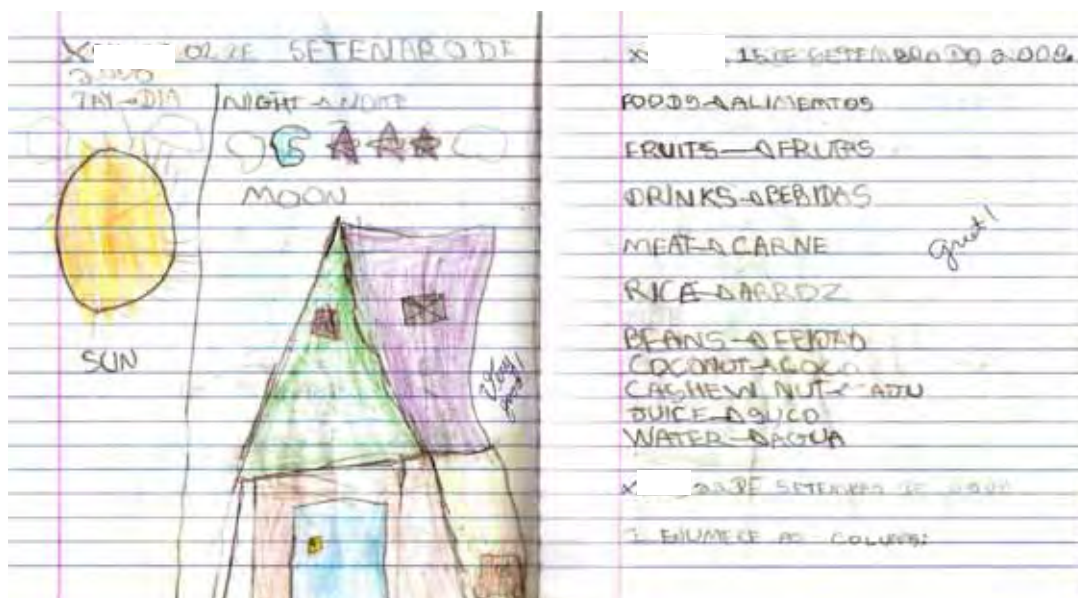 X 02 DE SETENARO DE
2.000
DAY→DIA
NIGHT→NOITE
MOON
SUN
Very
good!
X , 15 DE SETEMBRO DO 2.00
FOODS→ALIMEMTOS
FRUITS→FRUTAS
DRINKS→BEBIDAS
MEAT→CARNE
great!
RICE→ARROZ
BEANS→
COCONUT→COCO
CASHEW NUT→
JUICE→SUCO
WATER→AGUA
X DE SETEMBRO DE
1 ENUMECE AS COLUNAS: